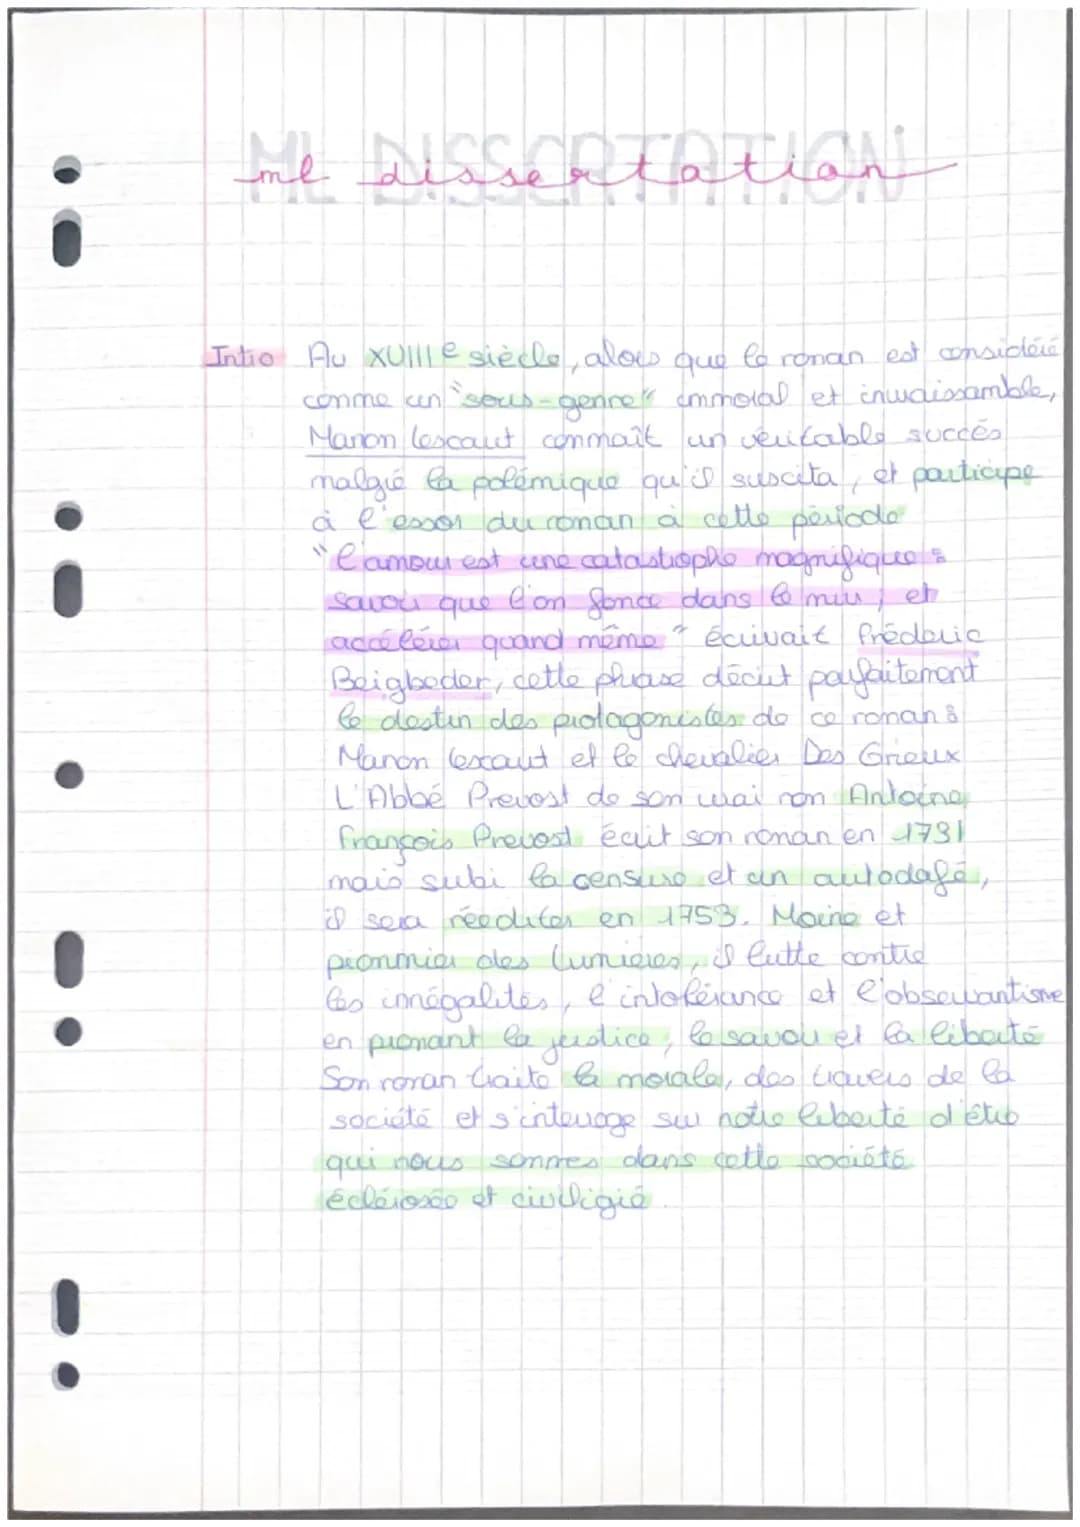 ML DISSERTATION
ml dissertation
Intro Au XVIIIe siècle, alors que le roman est considéré
comme un "sous-genre" immoral et invraissamble,
Manon Lescaut commaît un véritable succés
malgré la polémique qu'il suscita, et participe
à l'essor du roman à cette période
"L'amour est une catastrophe magnifique :
savoir que l'on fonce dans le mur, et
accélérer quand même" écrivait Fréderic
Beigbeder, cette phrase décrit parfaitement
le destin des protagonistes de ce roman :
Manon Lescaut et le chevalier Des Grieux
L'Abbé Prevost de son vrai nom Antoine
François Prevost écrit son roman en 1731
mais subi la censure et un autodafé,
il sera rééditer en 1753. Moine et
pionnnier des lumières, il lutte contre
les innégalités, l'intolérance et l'obscurantisme
en pronant la justice, le savoir et la liberté
Son roman traite la morale, des travers de la
société et s'interroge sur notre liberté d'être
qui nous sommes dans cette société
éclérosée et civiligié.